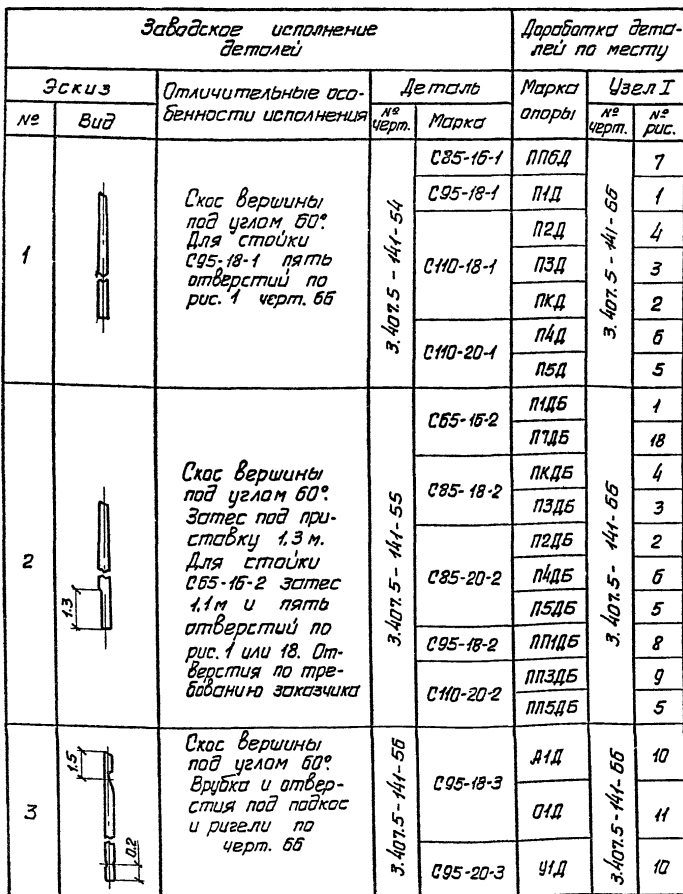 Заводское исполнение
деталей
Доработка дета-
лей по месту
Эскиз
Отличительные осо-
бенности исполнения
Деталь
Марка
опоры
Узел I
№
Вид
№
черт.
Марка
№
черт.
№
рис.
1
Скос вершины
под углом 60°.
Для стойки
С95-18-1 пять
отверстий по
рис. 1 черт. 66
3.407.5-141-54
С85-16-1 ПП6Д
3.407.5-141-66
7
С95-18-1 П1Д 1
С110-18-1 П2Д 4
П3Д 3
ПКД 2
С110-20-1 П4Д 6
П5Д 5
2
1.3
Скос вершины
под углом 60°.
Затес под при-
ставку 1,3 м.
Для стойки
С65-16-2 затес
1,1м и пять
отверстий по
рис. 1 или 18. От-
верстия по тре-
бованию заказчика
3.407.5-141-55
С65-16-2 П1ДБ
3.407.5-141-66
1
П7ДБ 18
С85-18-2 ПКДБ 4
П3ДБ 3
С85-20-2 П2ДБ 2
П4ДБ 6
П5ДБ 5
С95-18-2 ПП1ДБ 8
С110-20-2 ПП3ДБ 9
ПП5ДБ 5
3
1.5
0.2
Скос вершины
под углом 60°.
Врубка и отвер-
стия под подкос
и ригели по
черт. 66
3.407.5-141-56
С95-18-3 А1Д
3.407.5-141-66
10
О1Д 11
С95-20-3 У1Д 10